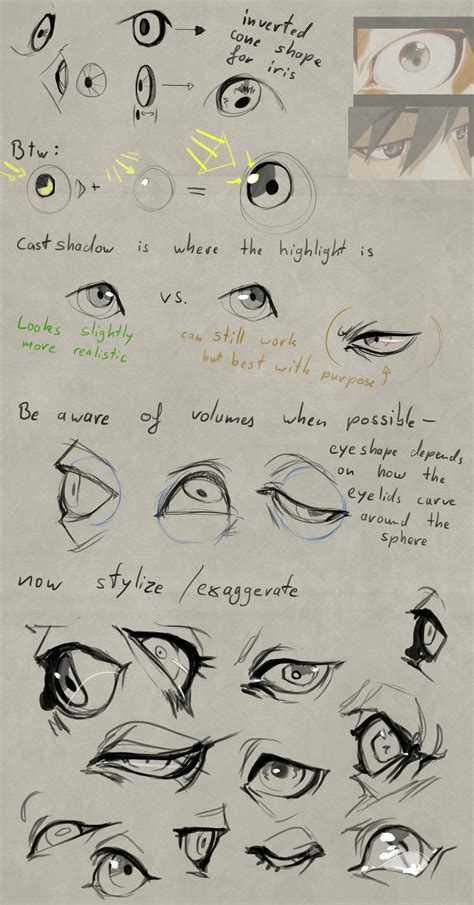 inverted
cone shape
for iris
Btw:
+
=
Cast shadow is where the highlight is
vs.
Looks slightly
more realistic
can still work
but best with purpose
Be aware of volumes when possible—
eyeshape depends
on how the
eyelids curve
around the
sphere
now stylize / exaggerate